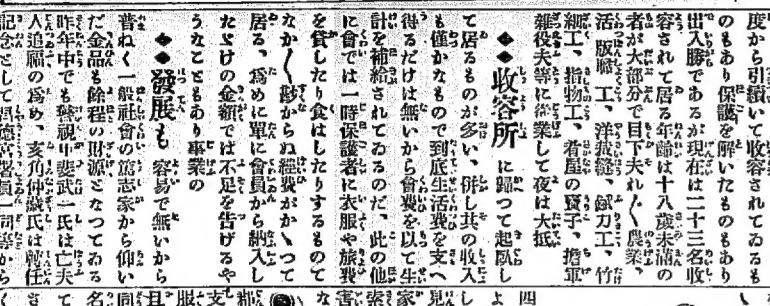 度から引續いて收容されてゐるも
のもあり保護を解いたものもあり
出入勝であるが現在は二十三名收
容されて居る年齢は十八歳未滿の
者が大部分で目下夫れ〲農業、
活版職工、洋裁縫、錻力工、竹
細工、指物工、着屋の寮子、擔軍
雜役夫等に從業して夜は大抵
◆◆收容所に歸つて起臥し
て居るものが多い、併し其の收入
も僅かなもので到底生活費を支へ
得るだけは無いから會費を以て生
計を補給されてゐるのだ、此の他
に會では一時保護者に衣服や旅費
を貸したり食はしたりするもので
なか〱尠からぬ經費がかゝつて
居る、爲めに單に會員から納入し
たゞけの金額では不足を告げるや
うなこともあり事業の
◆◆發展も容易で無いから
普ねく一般社會の篤志家から仰い
だ金品も餘程の財源となつてゐる
昨年中でも警視甲斐武一氏は亡夫
人追福の爲め、亥角仲藏氏は轉任
記念として